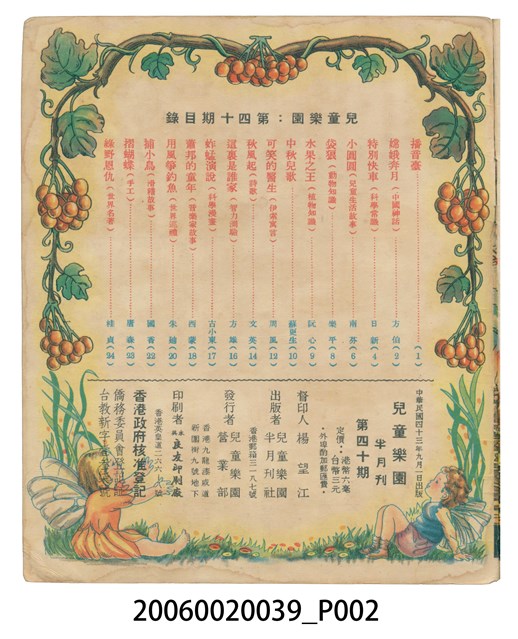 兒童樂園：第四十期目錄
播音臺 (1)
嫦娥奔月（中國神話） 方伯 (2)
特別快車（科學常識） 日新 (4)
小圓圓（兒童生活故事） 雨芬 (6)
袋狼（動物知識） 樂平 (8)
水果之王（植物知識） 阮心 (9)
中秋兒歌 蘇更生 (10)
可笑的醫生（伊索寓言） 周風 (12)
秋風起（詩歌） 文英 (14)
這裏是誰家（智力測驗） 方雄 (16)
蚱蜢演說（科學漫畫） 古小東 (17)
蕭邦的童年（音樂家故事） 西蒙 (18)
用風箏釣魚（世界巡禮） 朱繡 (20)
捕小鳥（滑稽故事） 國香 (22)
摺蝴蝶（手工） 唐森 (23)
綠野恩仇（世界名著） 桂貞 (24)
中華民國四十三年九月一日出版
兒童樂園
半月刊
第四十期
定價：港幣六毫
台幣三元
•外埠酌加郵匯費•
督印人 楊望江
出版者 兒童樂園半月刊社
香港郵箱三一八七號
發行者 兒童樂園營業部
香港九龍漆咸道
新圍街九號地下
印刷者 良友印刷廠
香港英皇道二六六號
香港政府核准登記
僑務委員會登記證
台教新字第
20060020039_P002